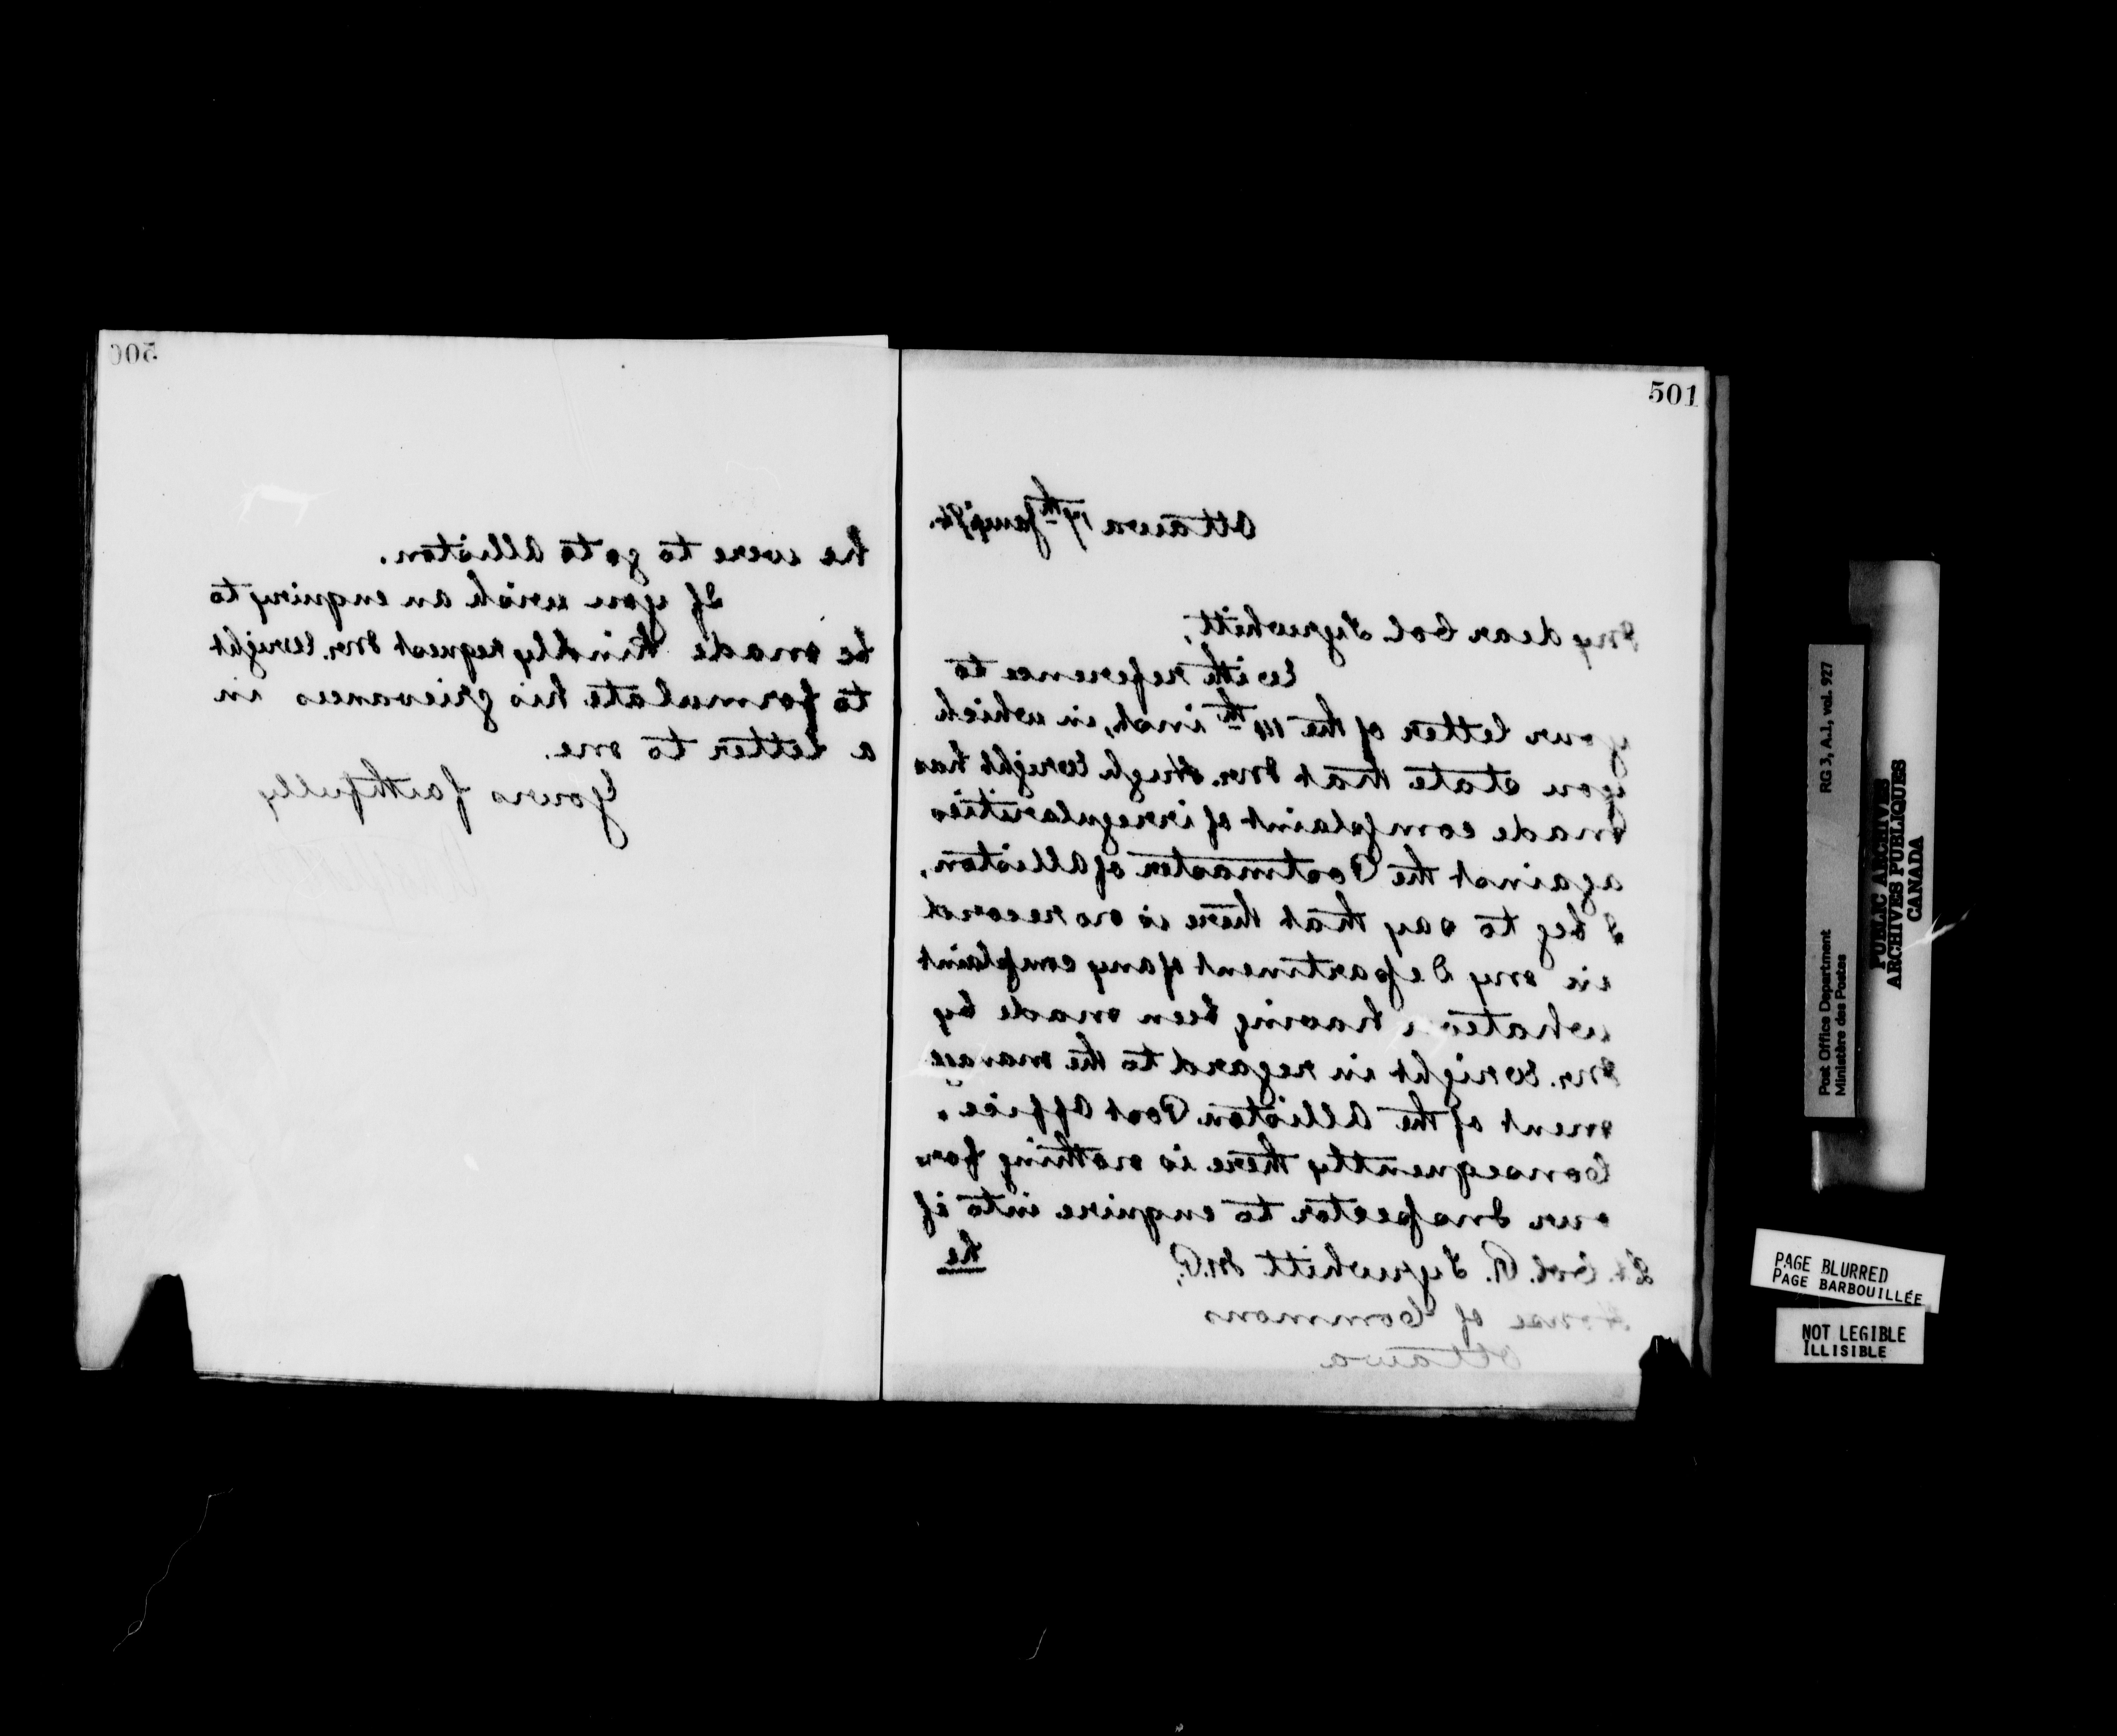 501
Ottawa 17th Jany
My dear Col. Tyrwhitt,
With reference to
your letter of the 14th inst, in which
you state that Mr. Hugh Wright has
made complaint of irregularities
against the Postmaster of Alliston,
I beg to say that there is no record
in my Department of any complaint
whatever having been made by
Mr. Wright in regard to the manage
ment of the Alliston Post Office.
Consequently there is nothing for
our Inspector to enquire into if
he
Lt. Col. R. Tyrwhitt M.P,
House of Commons
Ottawa
500
he were to go to Alliston.
If you wish an enquiry to
be made kindly request Mr. Wright
to formulate his grievances in
a letter to me.
Yours faithfully
Post Office Department
Ministère des Postes
RG 3, A.1, vol. 927
PUBLIC ARCHIVES
ARCHIVES PUBLIQUES
CANADA
PAGE BLURRED
PAGE BARBOUILLÉE
NOT LEGIBLE
ILLISIBLE